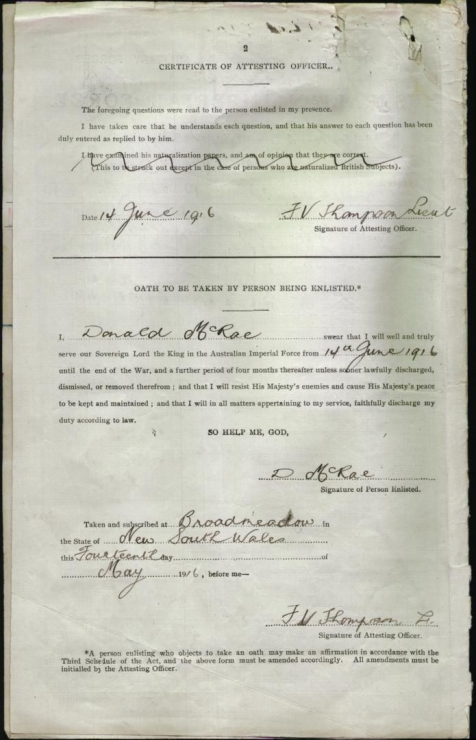 2
CERTIFICATE OF ATTESTING OFFICER.
The foregoing questions were read to the person enlisted in my presence.
I have taken care that he understands each question, and that his answer to each question has been
duly entered as replied to by him.
I have examined his naturalization papers, and am of opinion that they are correct.
(This to be struck out except in the case of persons who are naturalized British Subjects).
Date 14 June 1916 F V Thompson Lieut
Signature of Attesting Officer.
OATH TO BE TAKEN BY PERSON BEING ENLISTED.*
I, Donald McRae swear that I will well and truly
serve our Sovereign Lord the King in the Australian Imperial Force from 14th June 1916
until the end of the War, and a further period of four months thereafter unless sooner lawfully discharged,
dismissed, or removed therefrom ; and that I will resist His Majesty's enemies and cause His Majesty's peace
to be kept and maintained ; and that I will in all matters appertaining to my service, faithfully discharge my
duty according to law.
SO HELP ME, GOD,
D McRae
Signature of Person Enlisted.
Taken and subscribed at Broadmeadow in
the State of New South Wales
this Fourteenth day of
May 1916, before me—
F V Thompson L.
Signature of Attesting Officer.
*A person enlisting who objects to take an oath may make an affirmation in accordance with the
Third Schedule of the Act, and the above form must be amended accordingly. All amendments must be
initialled by the Attesting Officer.